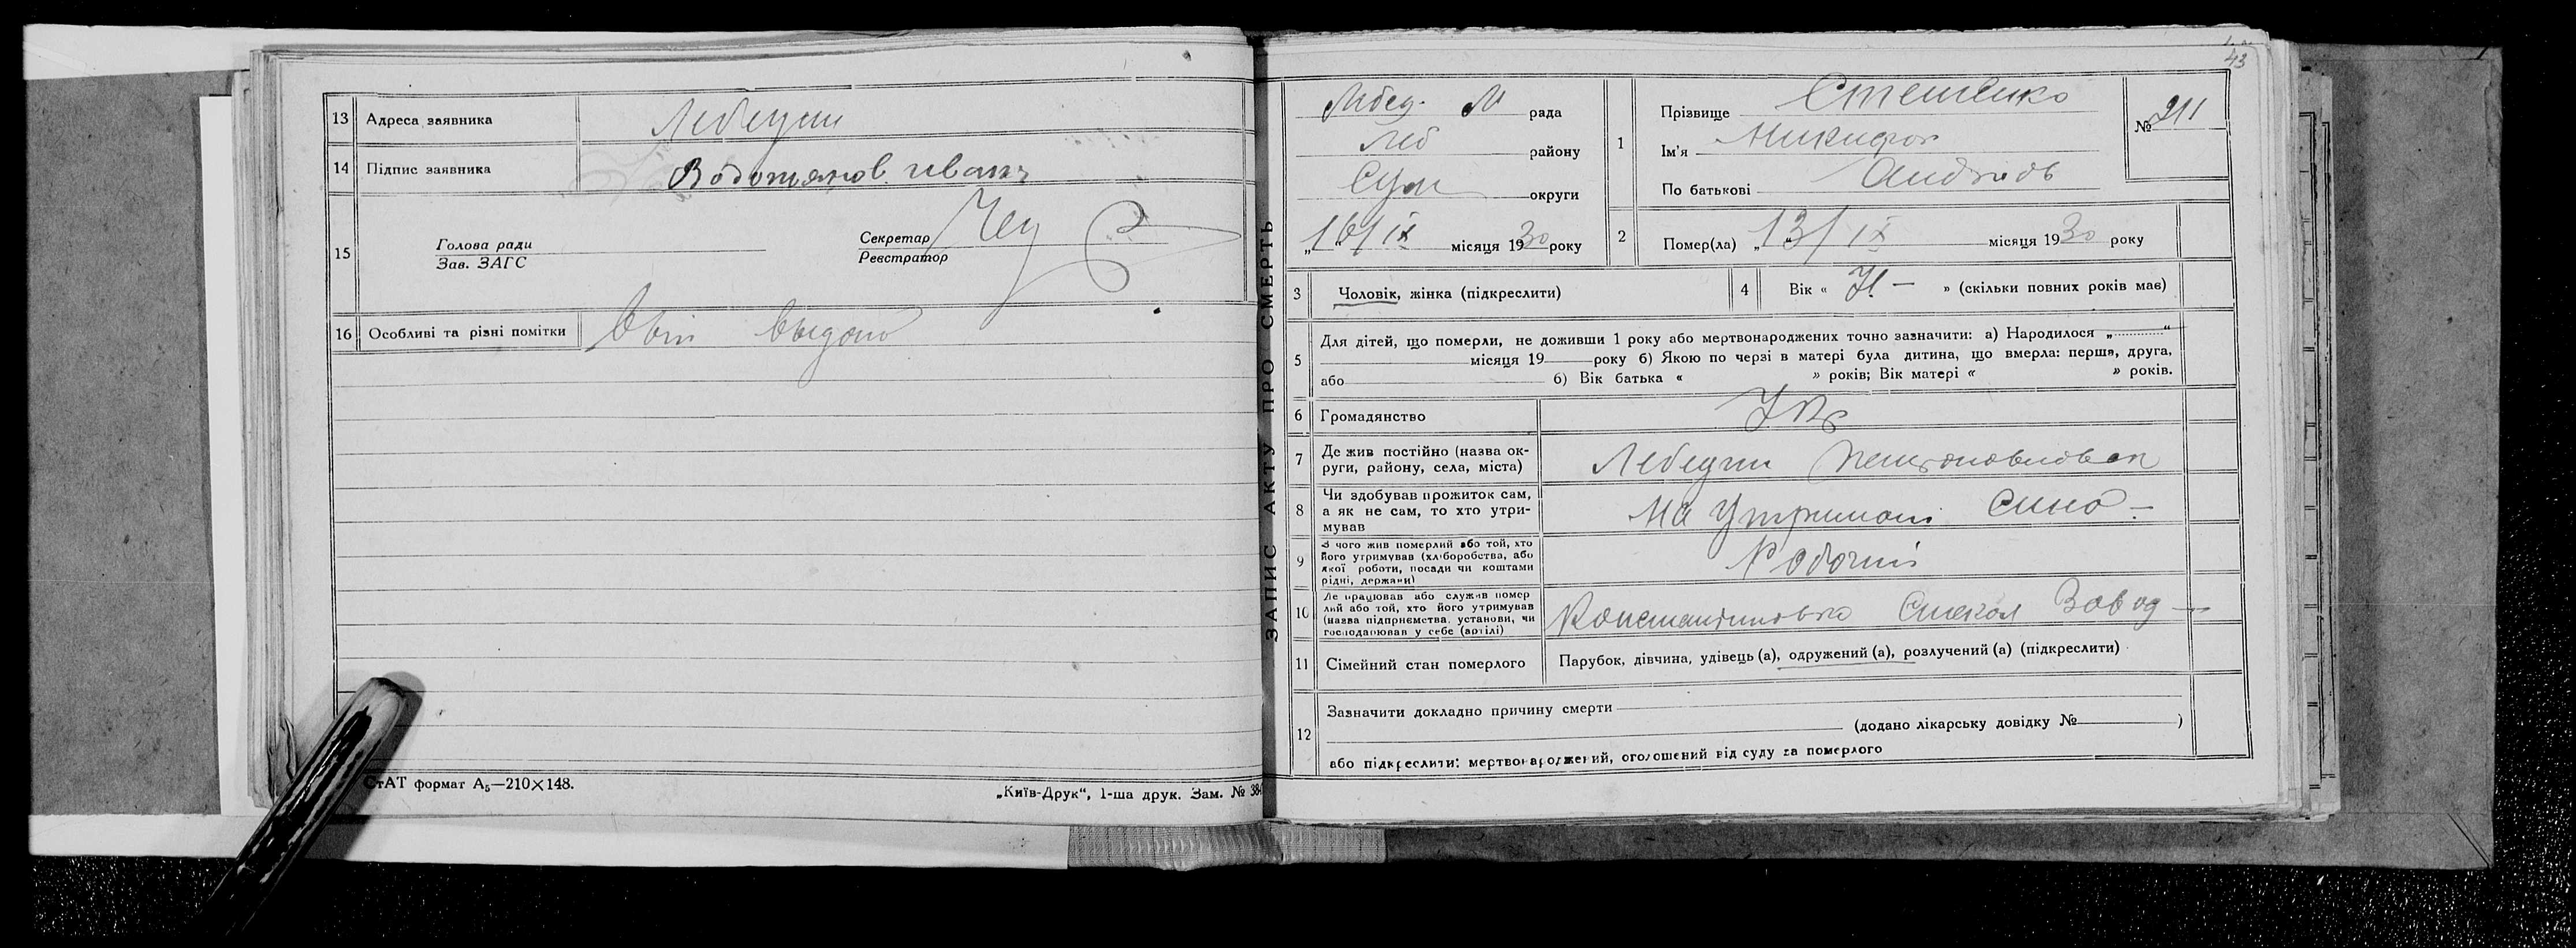 13 Адреса заявника Лебедин
14 Підпис заявника Водотянов иван
15 Голова ради
Зав. ЗАГС
Секретар
Реєстратор
16 Особливі та різні помітки видано
СтАТ формат А₅—210×148.
„Київ-Друк“, 1-ша друк. Зам. №
ЗАПИС АКТУ ПРО СМЕРТЬ
43
Лебед. М рада
Леб району
Сум округи
„16/IX місяця 1930 року
1 Прізвище Стешенко
Ім'я Никифор
По батькові Андрієв
№ 211
2 Помер(ла) „13/IX місяця 1930 року
3 Чоловік, жінка (підкреслити)
4 Вік « 71 — » (скільки повних років має)
5 Для дітей, що померли, не доживши 1 року або мертвонароджених точно зазначити: а) Народилося „ “
місяця 19 року б) Якою по черзі в матері була дитина, що вмерла: перша, друга,
або б) Вік батька « » років; Вік матері « » років.
6 Громадянство Укр
7 Де жив постійно (назва ок-
руги, району, села, міста) Лебедин
8 Чи здобував прожиток сам,
а як не сам, то хто утри-
мував На утримані сина —
9 З чого жив померлий або той, хто
його утримував (хліборобства, або
якої роботи, посади чи коштами
рідні, держави) Робочий
10 Де працював або служив помер
лий або той, хто його утримував
(назва підприємства, установи, чи
господарював у себе (артілі) Константиновка Стекол Завод —
11 Сімейний стан померлого Парубок, дівчина, удівець (а), одружений (а), розлучений (а) (підкреслити)
12 Зазначити докладно причину смерти
(додано лікарську довідку № )
або підкреслити: мертвонароджений, оголошений від суду за померлого